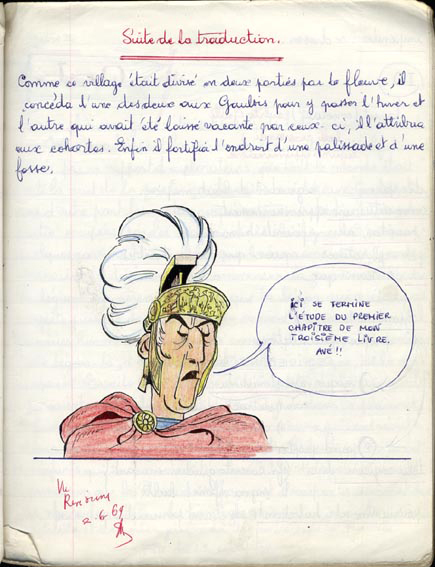 Suite de la traduction.
Comme ce village était divisé en deux parties par le fleuve, il
concéda l'une des deux aux Gaulois pour y passer l'hiver et
l'autre qui avait été laissé vacante par ceux-ci, il l'attribua
aux cohortes. Enfin il fortifia l'endroit d'une palissade et d'une
fosse.
ICI SE TERMINE
L'ÉTUDE DU PREMIER
CHAPÎTRE DE MON
TROÏSIÈME LIVRE.
AVÉ!!
Vu
2.6.69